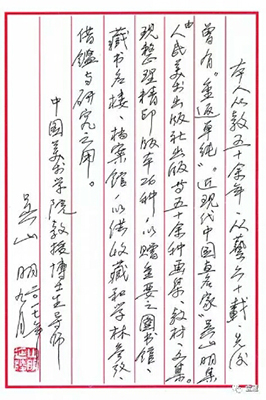 本人从教五十余年，从艺六十载，先后
曾有《重返单纯》《近现代中国画名家》吴山明集
由人民美术出版社出版等五十余种画册、教材、文集。
现整理精印版本26种，以赠重要之图书馆、
藏书名楼、档案馆，以供收藏和学林参考、
借鉴与研究之用。
中国美术学院教授博士生导师
吴山明
二〇一七年九月